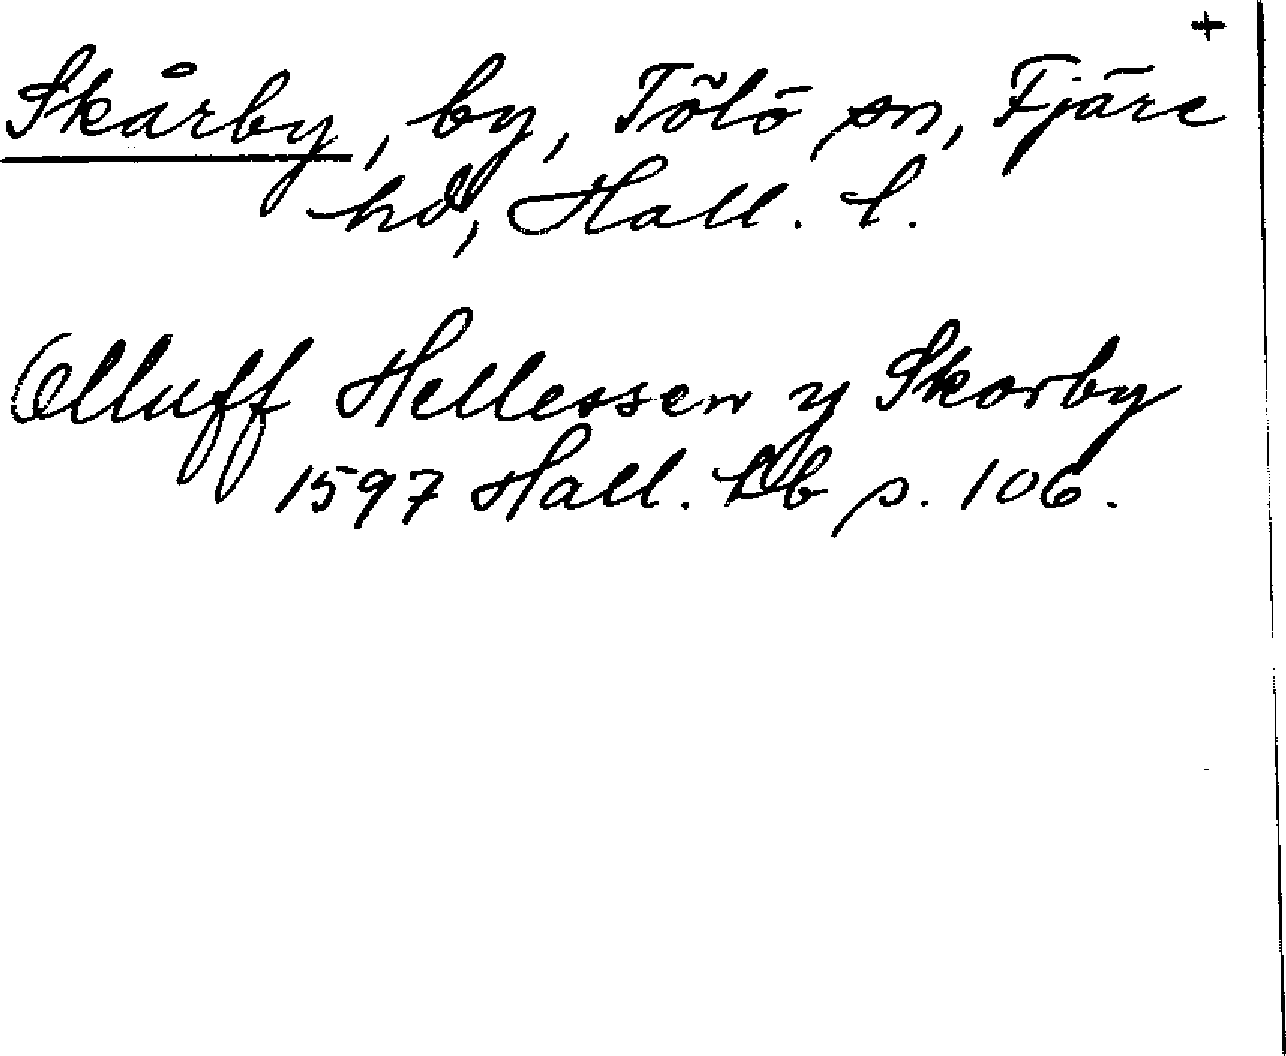 +
Skårby, by, Tölö sn, Fjäre
hd, Hall. l.
Olluff Hellessen y Skorby
1597 Hall. Lb p. 106.